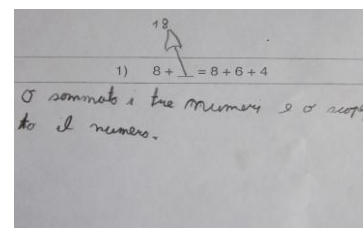 18
1) 8 + __ = 8 + 6 + 4
O sommato i tre numeri e o scoper
to il numero.